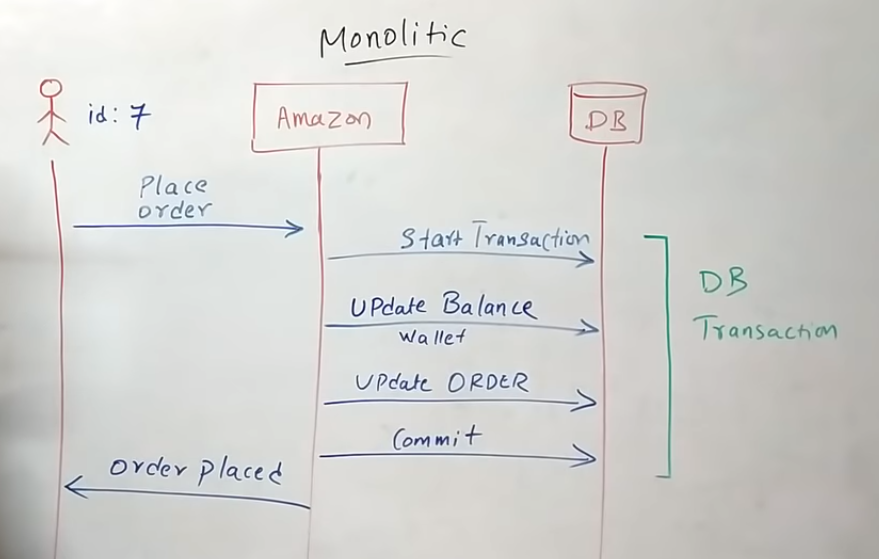 Monolitic
id: 7
Amazon
DB
Place
order
Start Transaction
UPdate Balance
Wallet
UPdate ORDER
Commit
order placed
DB
Transaction